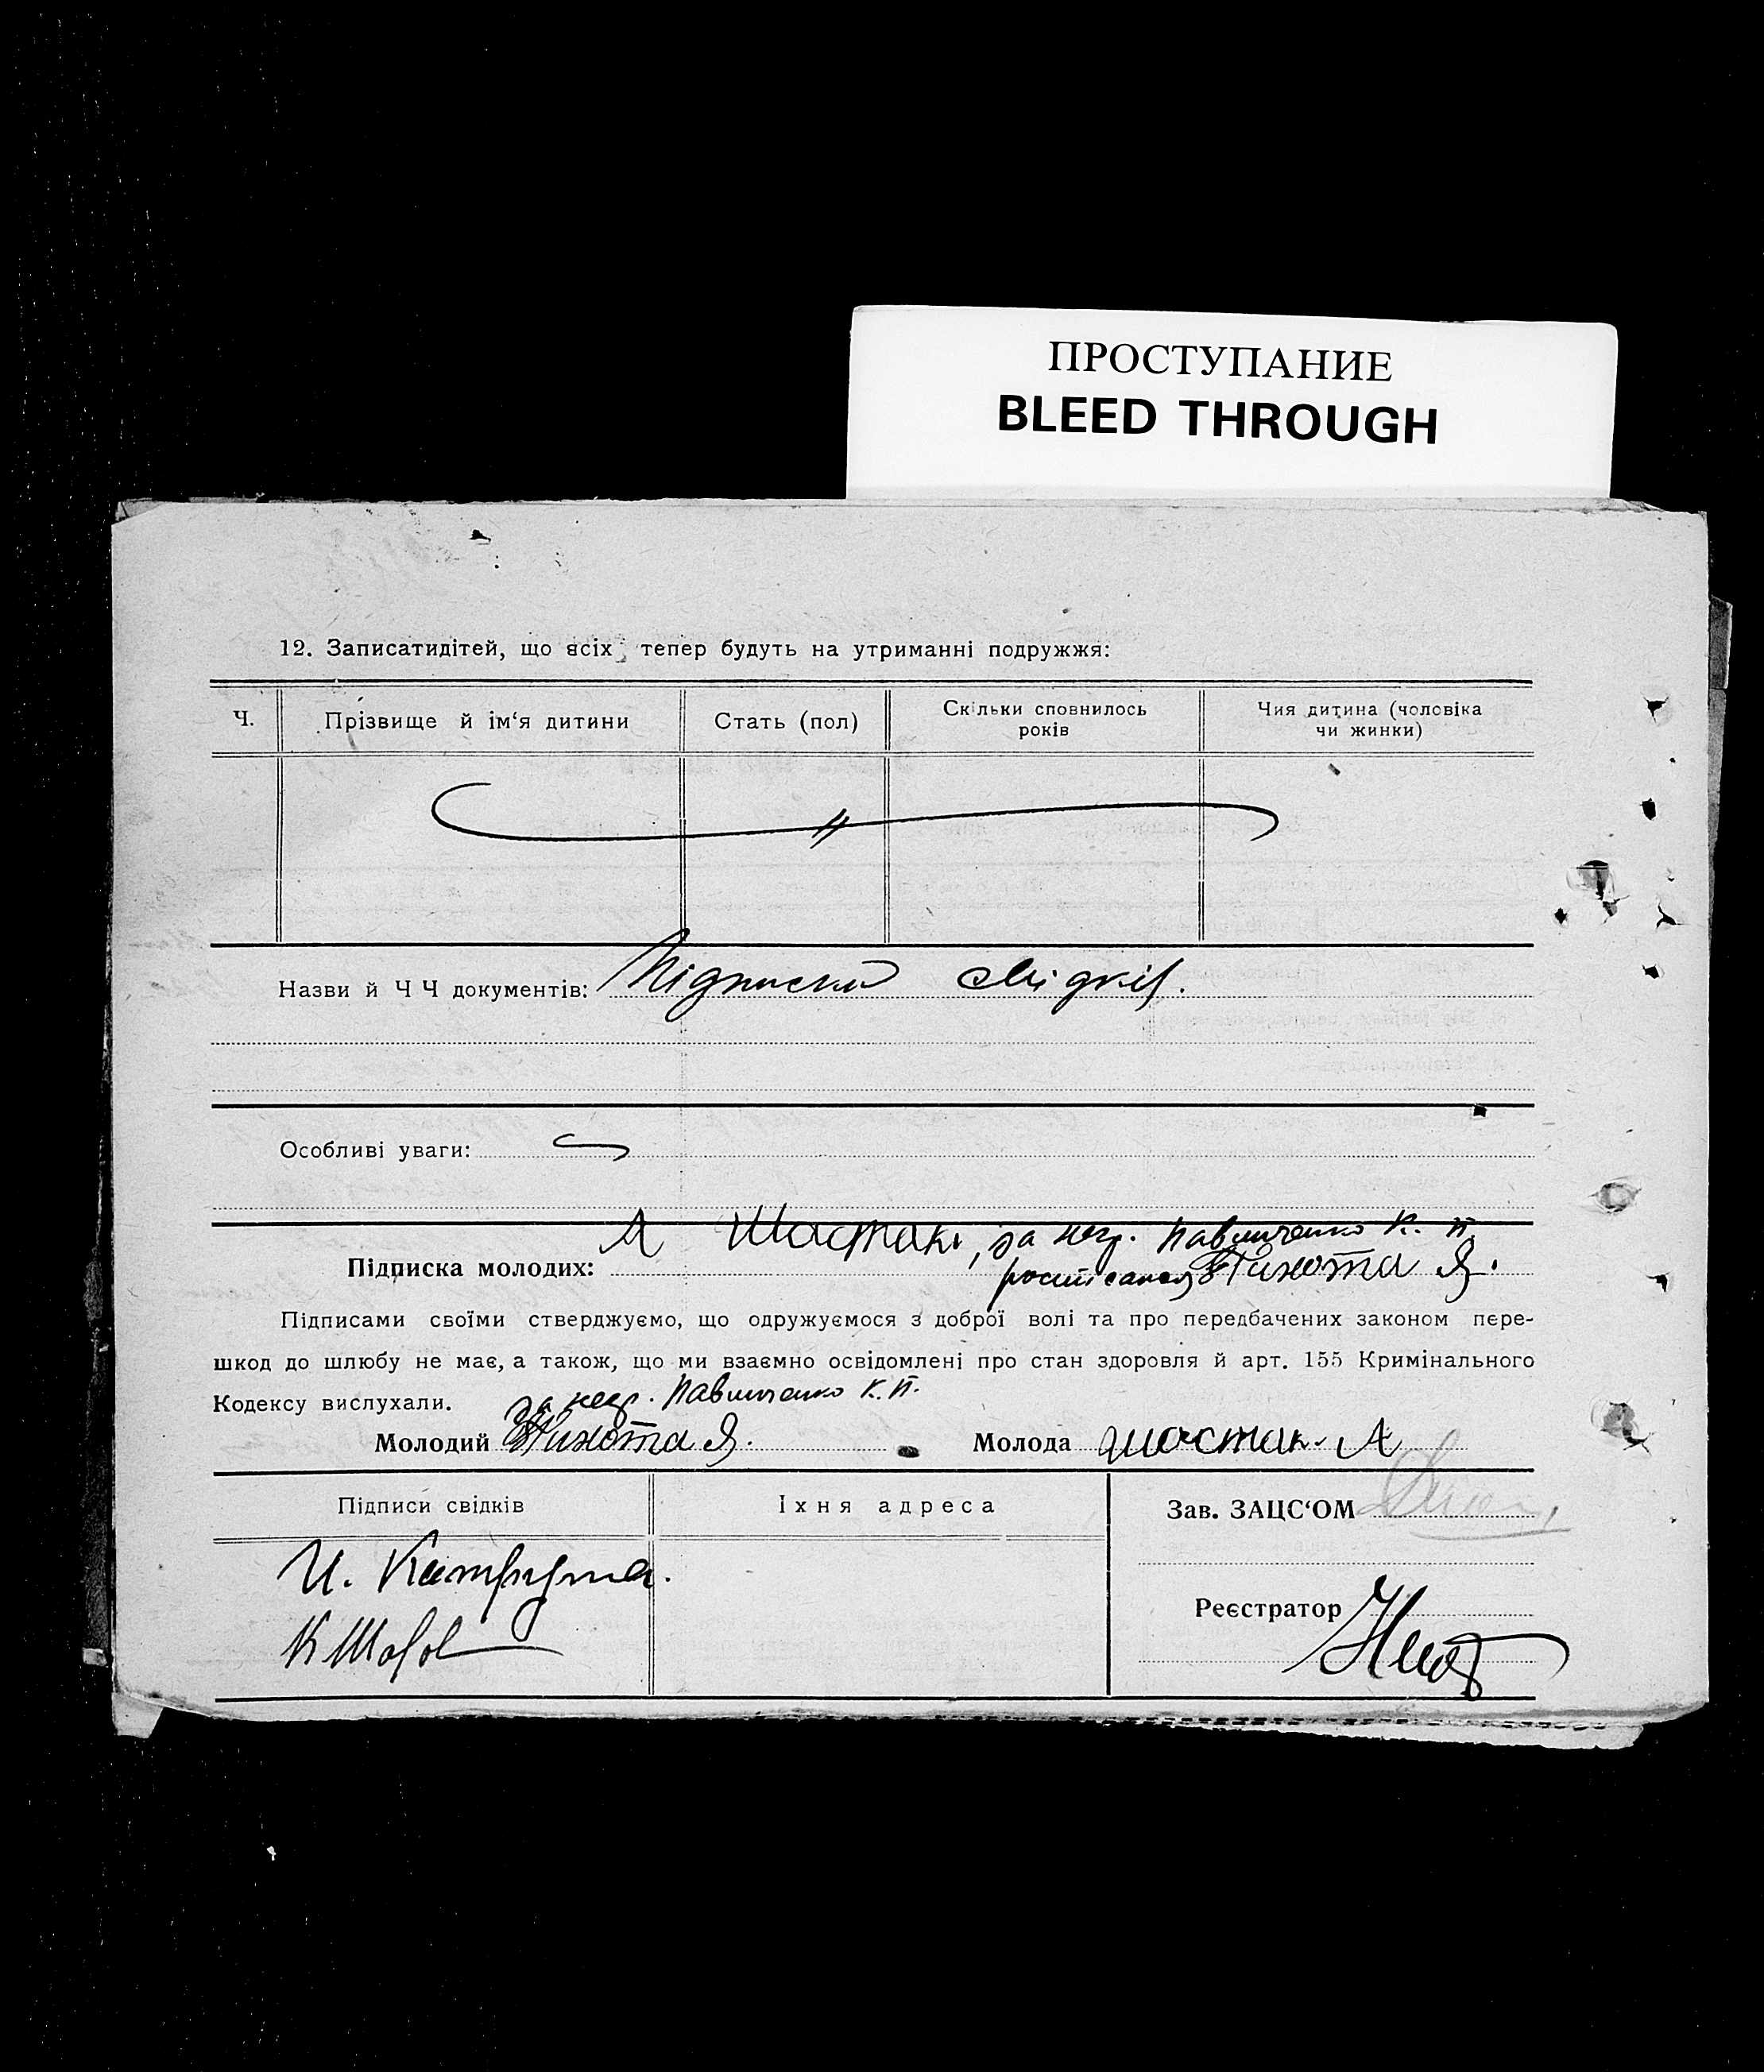 ПРОСТУПАНИЕ
BLEED THROUGH
12. Записатидітей, що всіх тепер будуть на утриманні подружжя:
Ч.
Прізвище й ім‘я дитини
Стать (пол)
Скільки сповнилось
років
Чия дитина (чоловіка
чи жинки)
Назви й Ч Ч документів: Підписки свідків.
Особливі уваги:
Підписка молодих: А Шастак, за негр. Павличенко К. П.
росписался Тихота Я.
Підписами своїми стверджуємо, що одружуємося з доброї волі та про передбачених законом пере-
шкод до шлюбу не має, а також, що ми взаємно освідомлені про стан здоровля й арт. 155 Кримінального
Кодексу вислухали. за негр. Павличенко К. П.
Молодий Тихота Я. Молода Шастак А
Підписи свідків
Їхня адреса
Зав. ЗАЦС‘ОМ
И.
К
Реєстратор